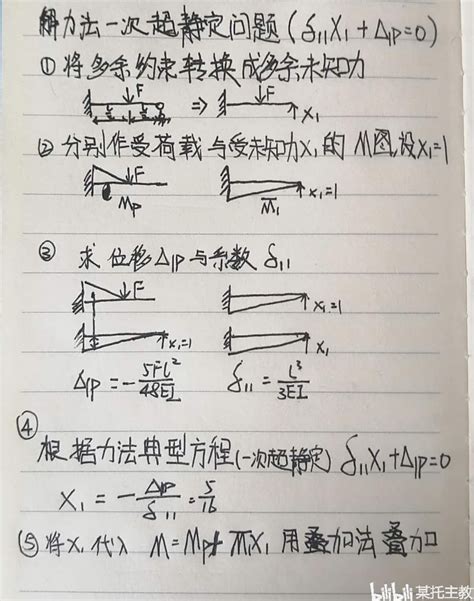 解力法一次超静定问题(δ₁₁X₁+Δ₁P=0)
①将多余约束转换成多余未知力
F ⇒ F X₁
②分别作受荷载与受未知力X₁的M图,设X₁=1
F X₁=1
Mp M̄₁
③ 求位移Δ₁P与系数δ₁₁
F X₁=1
X₁=1 X₁
Δ₁P=-5Fl³/48EI δ₁₁=l³/3EI
④
根据力法典型方程(一次超静定) δ₁₁X₁+Δ₁P=0
X₁=-Δ₁P/δ₁₁=5/16
⑤将X₁代入 M=Mp+M̄₁X₁ 用叠加法叠加
bilibili 某托主教